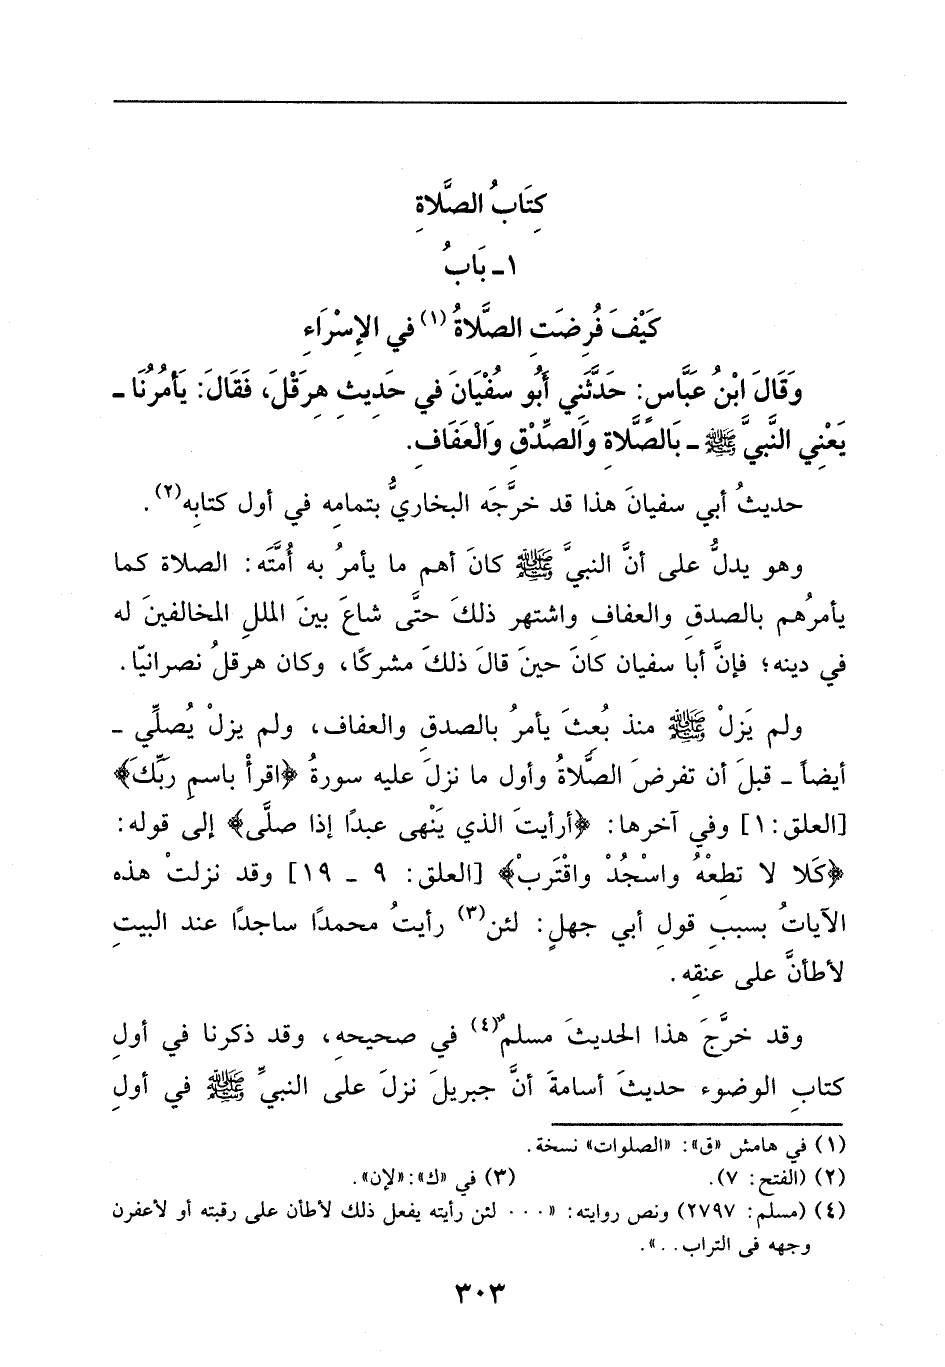 كِتَابُ الصَّلاةِ
١ - بَابُ
كَيْفَ فُرِضَتِ الصَّلاةُ (١) في الإِسْرَاءِ
وَقَالَ ابْنُ عَبَّاسٍ: حَدَّثَنِي أَبُو سُفْيَانَ في حَدِيثِ هِرَقْلَ، فَقَالَ: يَأْمُرُنَا -
يَعْنِي النَّبيَّ ﷺ - بَالصَّلاةِ وَالصِّدْقِ وَالْعَفَافِ.
حديثُ أبي سفيانَ هذا قد خرَّجَه البخاريُّ بتمامِه في أول كتابِه(٢).
وهو يدلُّ على أنَّ النبيَّ ﷺ كانَ أهم ما يأمرُ به أُمَّتَه: الصلاة كما
يأمرُهم بالصدقِ والعفافِ واشتهر ذلكَ حتَّى شاعَ بينَ المللِ المخالفينَ له
في دينِه؛ فإنَّ أبا سفيان كانَ حينَ قالَ ذلكَ مشركًا، وكان هرقلُ نصرانيّا.
ولم يَزلْ ﷺ منذ بُعثَ يأمرُ بالصدقِ والعفاف، ولم يزلْ يُصلِّي -
أيضاً - قبلَ أن تفرضَ الصَّلاةُ وأول ما نزلَ عليه سورةُ ﴿اقرأْ باسمِ ربِّكَ﴾
[العلق:١] وفي آخرها: ﴿أرأيتَ الذي يَنْهى عبدًا إذا صلَّى﴾ إلى قوله:
﴿كَلا لا تطِعْهُ واسْجُدْ واقْتَرِبْ﴾ [العلق: ٩ - ١٩] وقد نزلتْ هذه
الآياتُ بسببِ قولِ أبي جهلٍ: لئن(٣) رأيتُ محمدًا ساجدًا عند البيتِ
لأطأنَّ على عنقِه.
وقد خرَّجَ هذا الحديثَ مسلمٌ(٤) في صحيحهِ، وقد ذكرنا في أولِ
كتابِ الوضوء حديثَ أسامةَ أنَّ جبريلَ نزلَ على النبيِّ ﷺ في أولِ
(١) في هامش «ق»: «الصلوات» نسخة.
(٢) (الفتح: ٧). (٣) في «ك»:«لإن».
(٤) (مسلم: ٢٧٩٧) ونص روايته: «... لئن رأيته يفعل ذلك لأطأن على رقبته أو لأعفرن
وجهه في التراب...».
٣٠٣